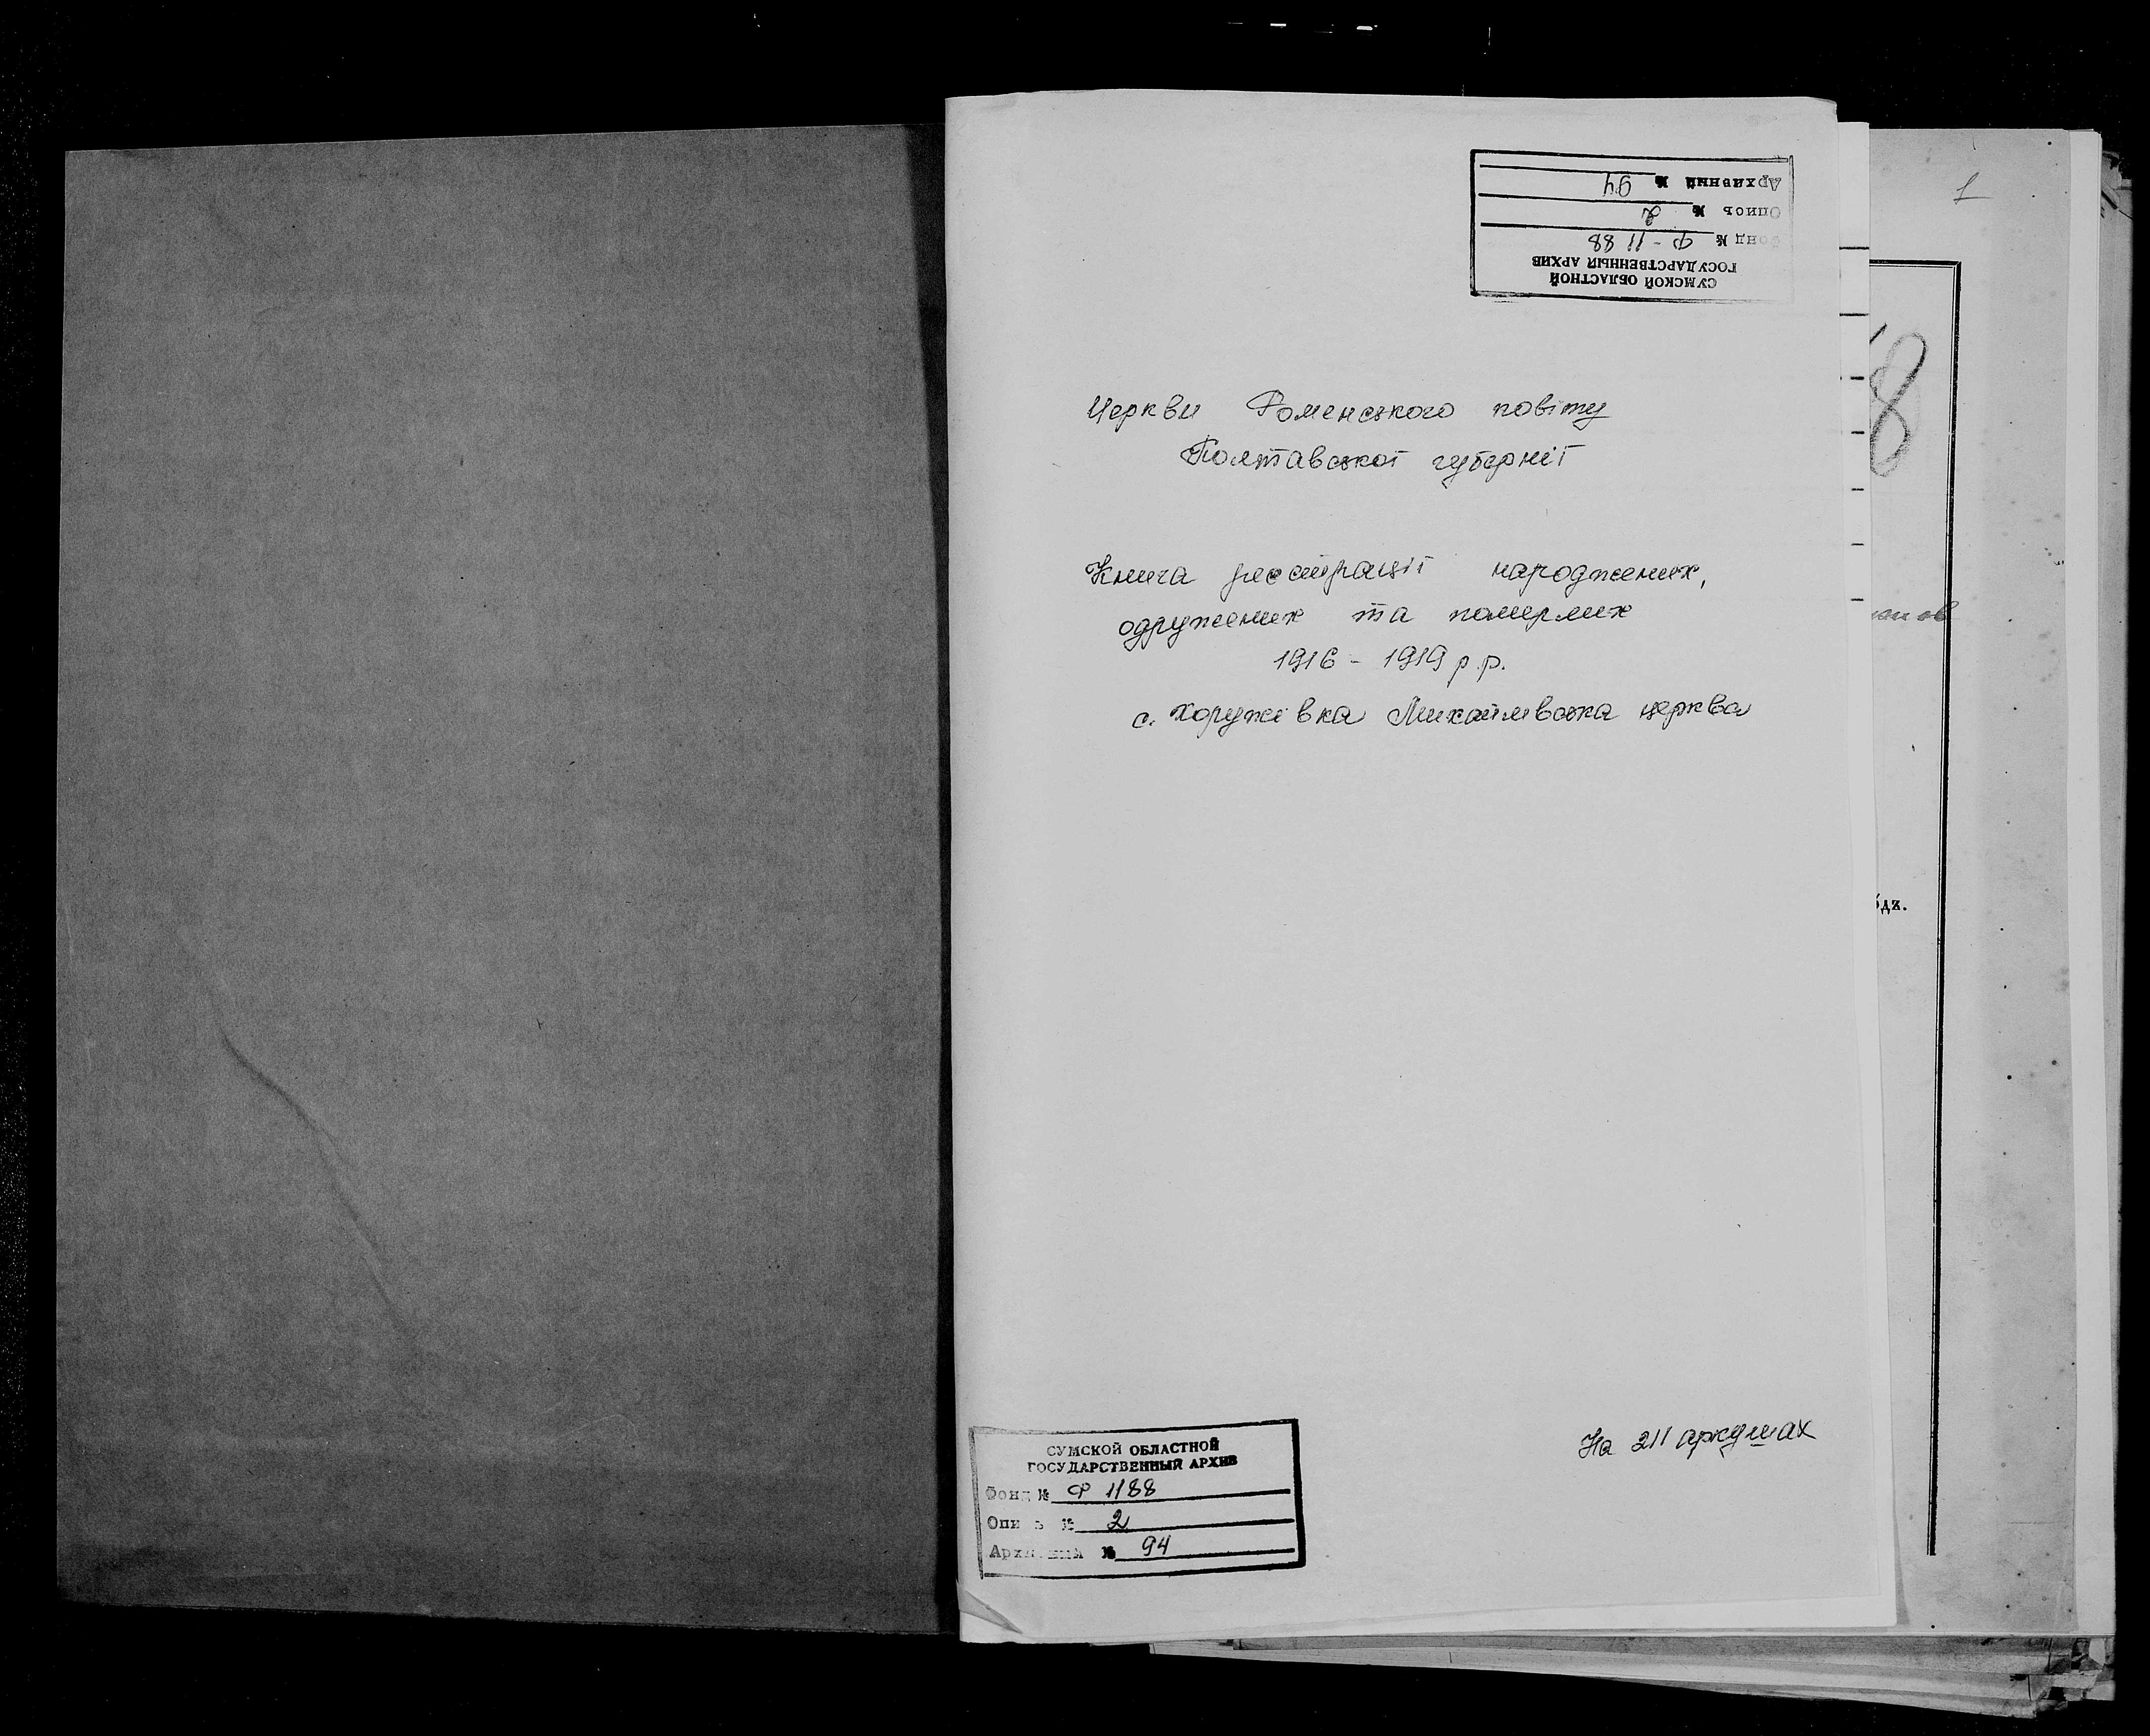 СУМСКОЙ ОБЛАСТНОЙ
ГОСУДАРСТВЕННЫЙ АРХИВ
Фонд № Ф-1188
Опись № 2
Архивный № 94
1
Церкви Роменського повіту
Полтавської губернії
Книга реєстрації народжених,
одружених та померлих
1916 - 1919 р.р.
с. Хоружівка Михайлівська церква
8
На 211 аркушах
СУМСКОЙ ОБЛАСТНОЙ
ГОСУДАРСТВЕННЫЙ АРХИВ
Фонд № Ф 1188
Опись № 2
Архивный № 94